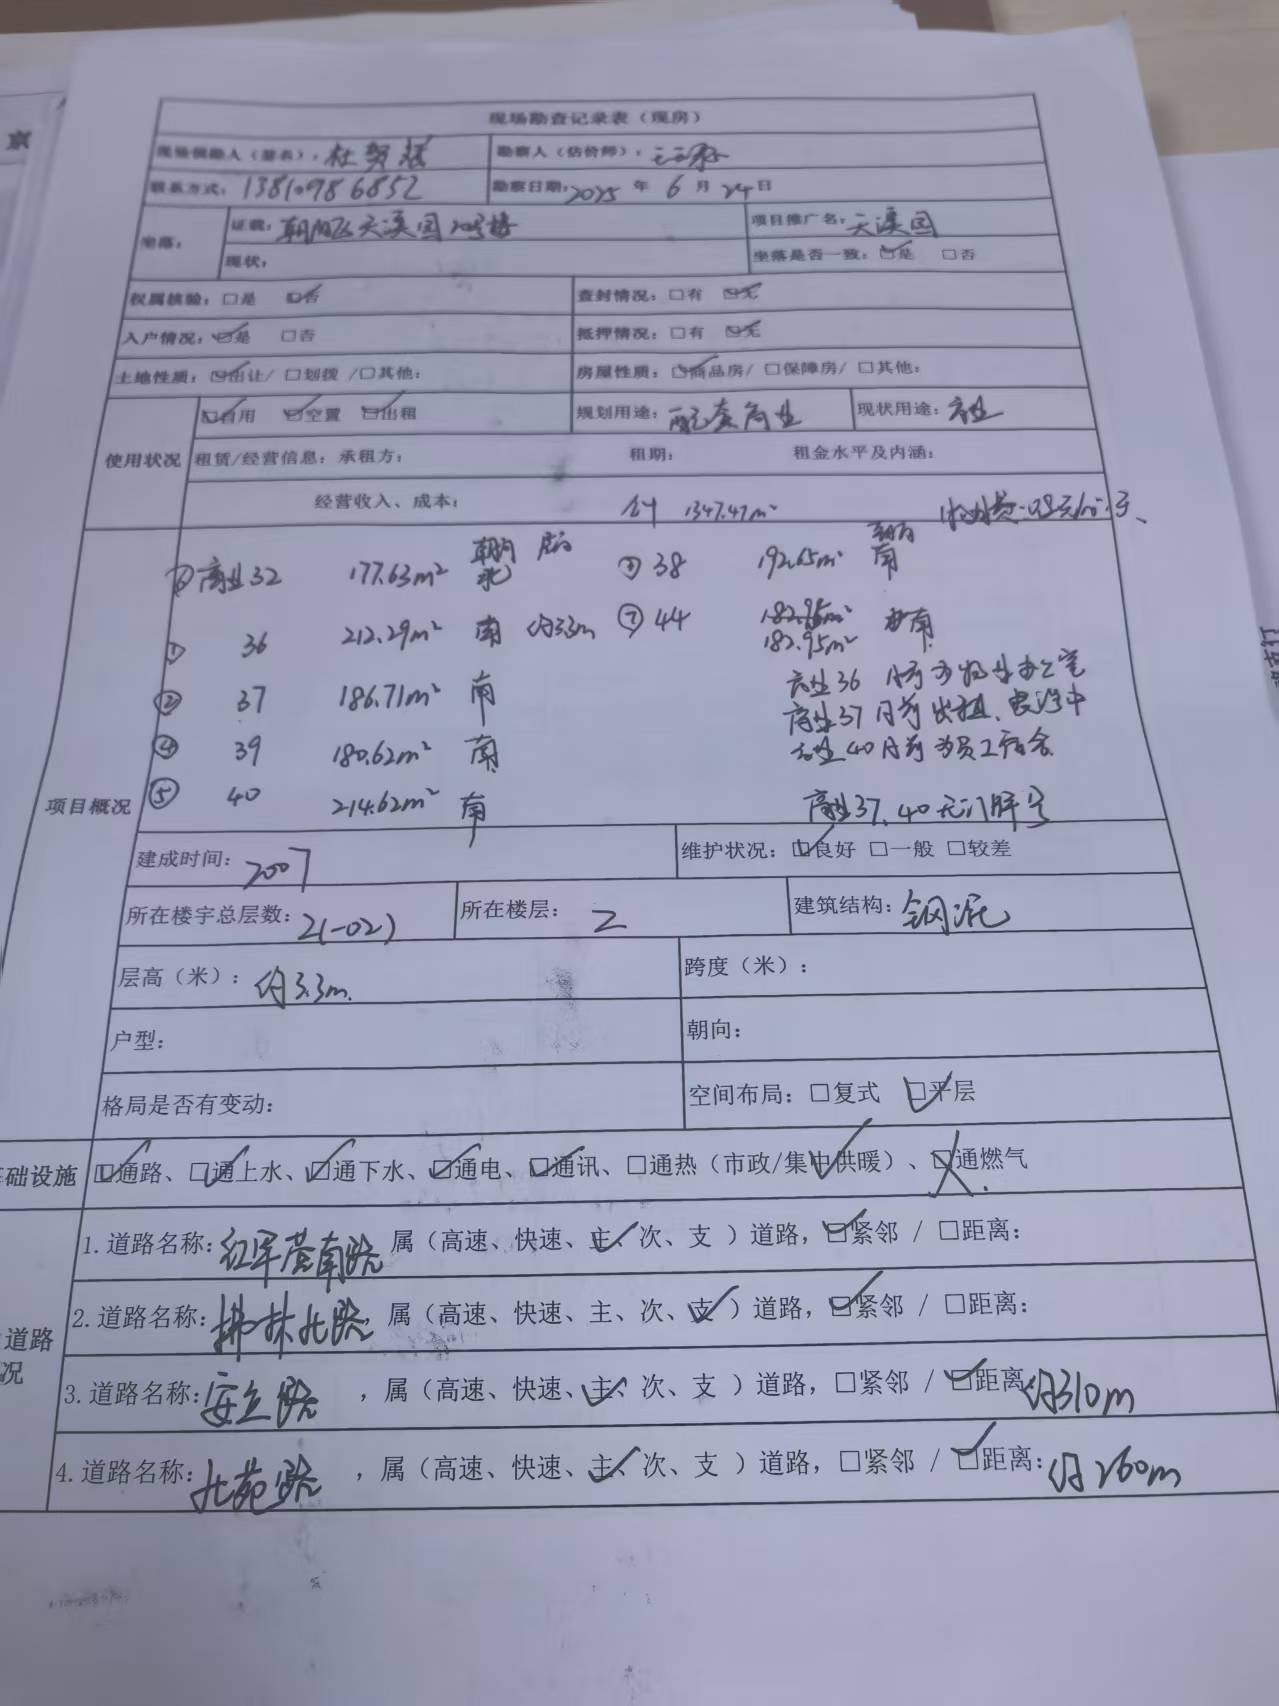 京
现场勘查记录表（现房）
现场领勘人（签名）：杜贺 勘察人（估价师）：
联系方式：13810986852 勘察日期：2025 年 6 月 24 日
坐落： 证载：朝阳区天溪园20号楼 项目推广名：天溪园
现状： 坐落是否一致：☑是 □否
权属核验：□是 ☑否 查封情况：□有 ☑无
入户情况：☑是 □否 抵押情况：□有 ☑无
土地性质：☑出让/ □划拨 /□其他： 房屋性质：☑商品房/ □保障房/ □其他：
☑自用 ☑空置 ☑出租 规划用途：配套商业 现状用途：商业
使用状况 租赁/经营信息：承租方： 租期： 租金水平及内涵：
经营收入、成本： 合计 1347.47m²
⑥ 商业32 177.63m² 朝向 北 ③ 38 192.65m² 朝向 南
① 36 212.29m² 南 约3.3m ⑦ 44 182.95m² 西南
182.95m²
② 37 186.71m² 南 商业36 目前为物业办公室
商业37 目前出租、装修中
④ 39 180.62m² 南 商业40 目前为员工宿舍
⑤ 40 214.62m² 南 商业37、40无门牌号
项目概况
建成时间：2007 维护状况：☑良好 □一般 □较差
所在楼宇总层数：2(-02) 所在楼层：2 建筑结构：钢混
层高（米）：约3.3m. 跨度（米）：
户型： 朝向：
格局是否有变动： 空间布局：□复式 ☑平层
础设施 ☑通路、☑通上水、☑通下水、☑通电、☑通讯、□通热（市政/集中供暖）、☒通燃气
1.道路名称：红军营南路 属（高速、快速、主、次、支 ）道路，☑紧邻 / □距离：
2.道路名称：拂林北路，属（高速、快速、主、次、支 ）道路，☑紧邻 / □距离：
道路
况
3.道路名称：安立路 ，属（高速、快速、主、次、支 ）道路，□紧邻 / ☑距离 约310m
4.道路名称：北苑路 ，属（高速、快速、主、次、支 ）道路，□紧邻 / ☑距离：约260m